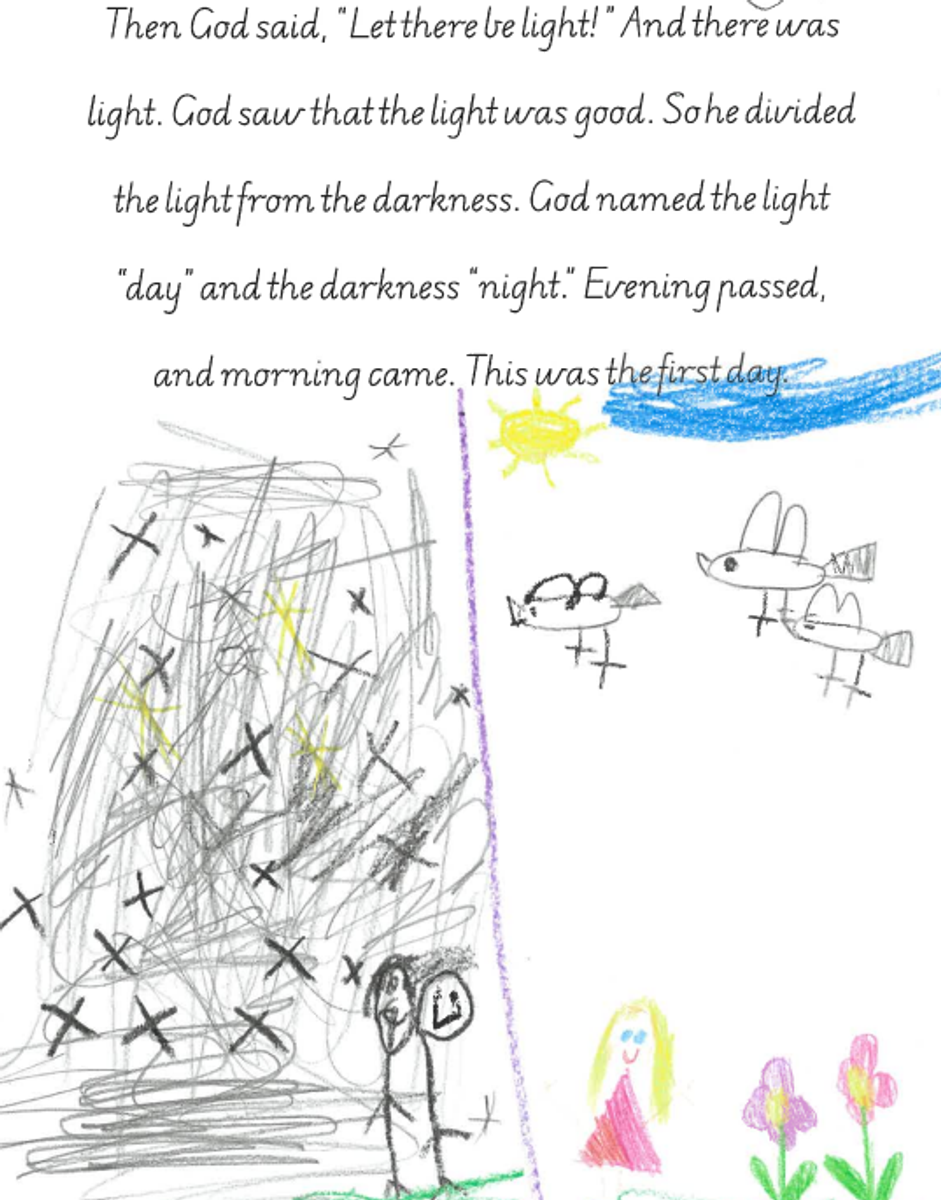 Then God said, "Let there be light!" And there was
light. God saw that the light was good. So he divided
the light from the darkness. God named the light
"day" and the darkness "night." Evening passed,
and morning came. This was the first day.